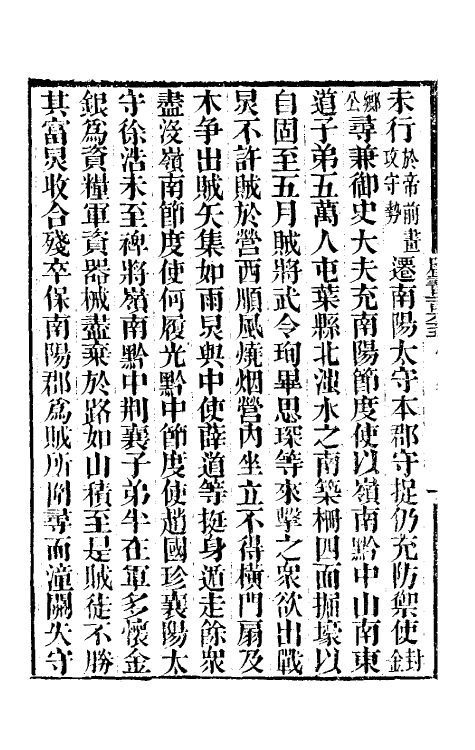 未行於帝前畫攻守勢遷南陽太守本郡守捉仍充防禦使封金
鄉公尋兼御史大夫充南陽節度使以嶺南黔中山南東
道子弟五萬人屯葉縣北滍水之南築柵四面掘壕以
自固至五月賊將武令珣畢思琛等來擊之衆欲出戰
炅不許賊於營西順風燒烟營內坐立不得橫門扇及
木争出賊矢集如雨炅與中使薛道等挺身遁走餘衆
盡沒嶺南節度使何履光黔中節度使趙國珍襄陽太
守徐浩未至裨將嶺南黔中荆襄子弟半在軍多懷金
銀爲資糧軍資器械盡棄於路如山積至是賊徒不勝
其富炅收合殘卒保南陽郡爲賊所圍尋而潼關失守